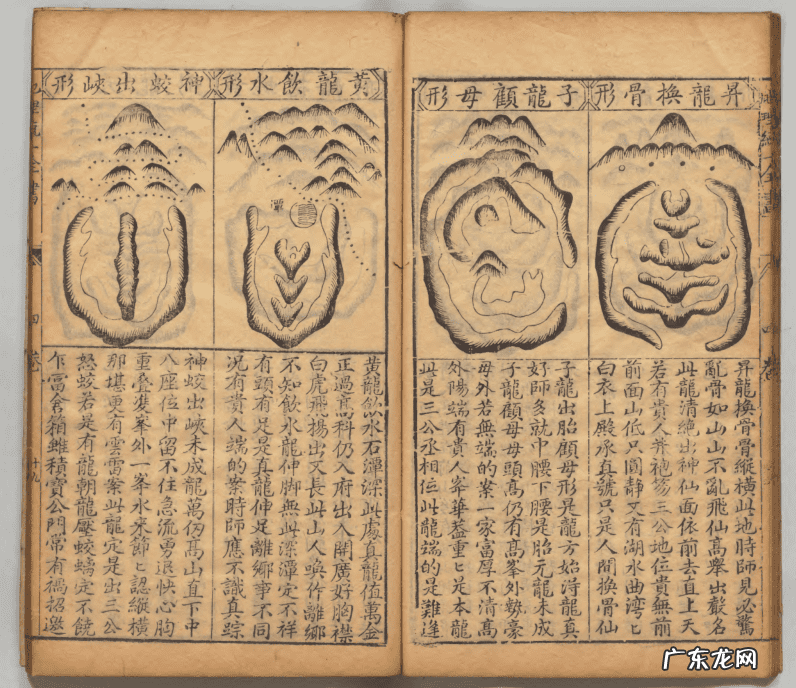 昇龍換骨形
昇龍換骨骨縱橫此地時師見必驚
亂骨如山山不亂飛仙高舉出聲名
此龍清絶出神仙面依前去直上天
若有貴人并袍笏三公地位貴無前
前面山低只圓静又有湖水曲湾〻
白衣上殿承直號只是人間換骨仙
子龍顧母形
子龍出胎顧母形是龍方始淂龍真
好師多就中腰下腰是胎元龍未成
子龍顧母母頭高仍有高峯外聳豪
母外若無端的案一家富厚不清高
外陽端有貴人峯華葢重〻是本龍
此是三公丞相位此龍端的是難逢
黄龍飲水形
潭
黄龍飲水石潭深此處真龍值萬金
正過高科仍入府出入開廣好胸襟
白虎飛揚出又長此山人喚作離鄉
不知飲水龍伸脚無此深潭定不祥
有頭有足是真龍伸足離鄉事不同
况有貴人端的案時師應不識真踪
神蛟出峽形
神蛟出峽未成龍萬仭髙山直下中
八座位中留不住急流勇退快心胸
重臺雙峯外一峯水来節〻認縱橫
那堪更有雲雷案此龍定是出三公
怒蛟若是有龍朝龍壓蛟蠕定不饒
乍富倉箱雖積寶公門常有禍招邀
四卷
十九
广东龙网